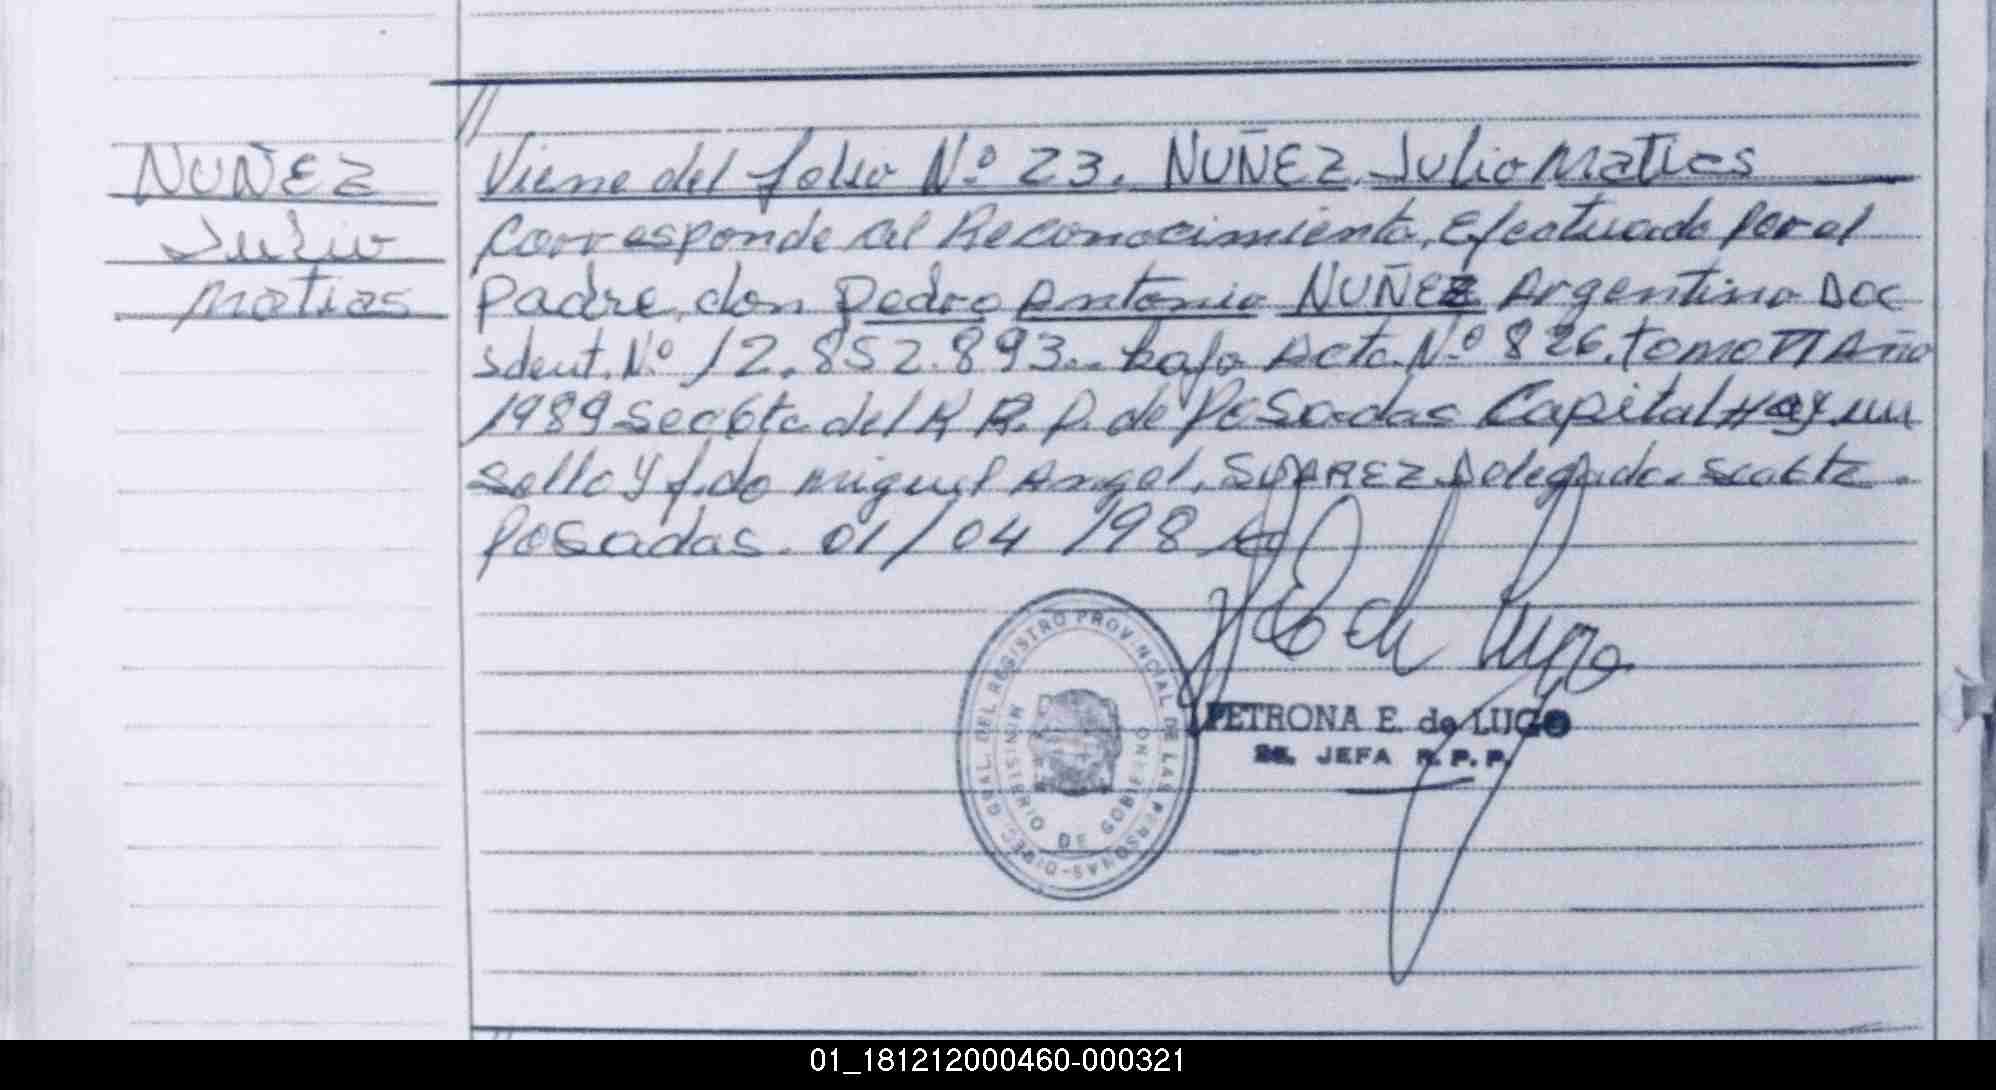 NUÑEZ
Julio
Matias
//
Viene del folio Nº 23. NUÑEZ Julio Matias
Corresponde al Reconocimiento, Efectuado por el
Padre, don Pedro Antonio NUÑEZ Argentino Doc
Ident. Nº 12.852.893.- bajo Acta Nº 826, tomo VI Año
1989 Sec 6ta del R. P. de Posadas Capital Hay un
sello y f.do Miguel Angel, SUAREZ Delegado Sec 6ta.
Posadas. 01/04/198
PETRONA E. de LUGO
JEFA R.P.P.
DIREC. GRAL. DEL REGISTRO PROVINCIAL DE LAS PERSONAS
MINISTERIO DE GOBIERNO
01_181212000460-000321